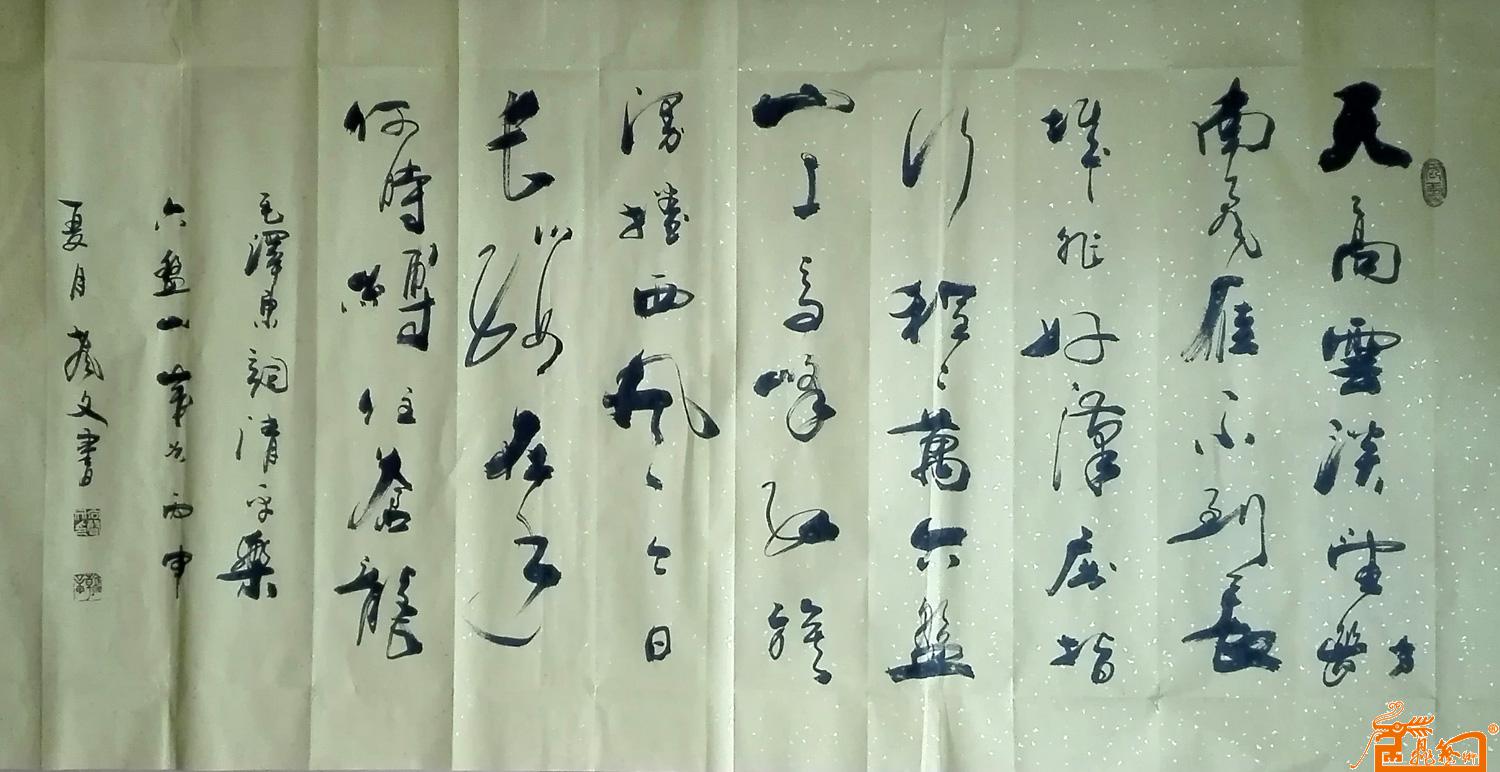 天高雲淡望斷
南飛雁不到長
城非好漢屈指
行程二萬六盤
山上高峰紅旗
漫捲西風今日
長纓在手
何時縛住蒼龍
毛澤東詞清平樂
六盤山歲次丙申
夏月文書